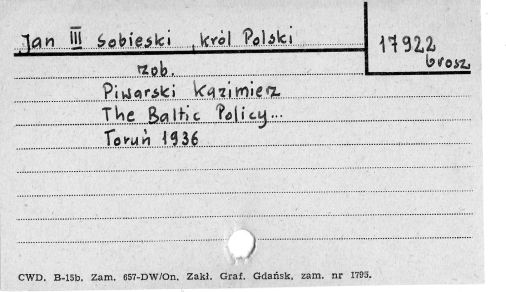 Jan III Sobieski, król Polski
17922
brosz
zob.
Piwarski Kazimierz
The Baltic Policy...
Toruń 1936
CWD. B-15b. Zam. 657-DW/On. Zakł. Graf. Gdańsk, zam. nr 1795.